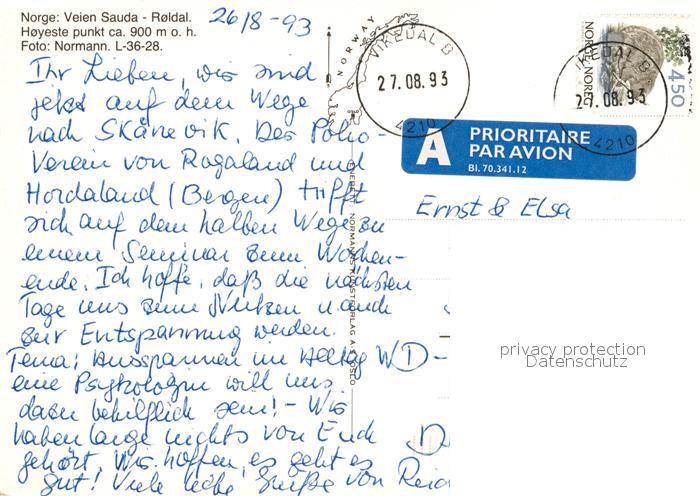 Norge: Veien Sauda - Røldal.
Høyeste punkt ca. 900 m o. h.
Foto: Normann. L-36-28.
26/8 - 93
Ihr Lieben, wir sind
jetzt auf dem Wege
nach Skånevik. Der Polio-
Verein von Rogaland und
Hordaland (Bergen) trifft
sich auf dem halben Wege zu
einem Seminar zum Wochen-
ende. Ich hoffe, daß die nächsten
Tage uns zum Nutzen u. auch
zur Entspannung werden.
Tema: Ausspannen im Alltag
eine Psykologin will uns
dabei behilflich sein! - Wir
haben lange nichts von Euch
gehört, wir hoffen, es geht es
gut! Viele liebe Grüße von
NORWAY
VIKEDAL B
27.08.93
4210
NORGE. NOREG
450
27.08.93
4210
A PRIORITAIRE
PAR AVION
Bl. 70.341.12
Ernst & Elsa
privacy protection
Datenschutz